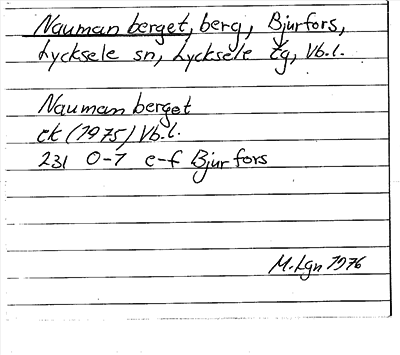 Naumanberget, berg, Bjurfors,
Lycksele sn, Lycksele tg, Vb.l.
Naumanberget
ek (1975) Vb.l.
231 0-7 e-f Bjurfors
M. Lgn 1976